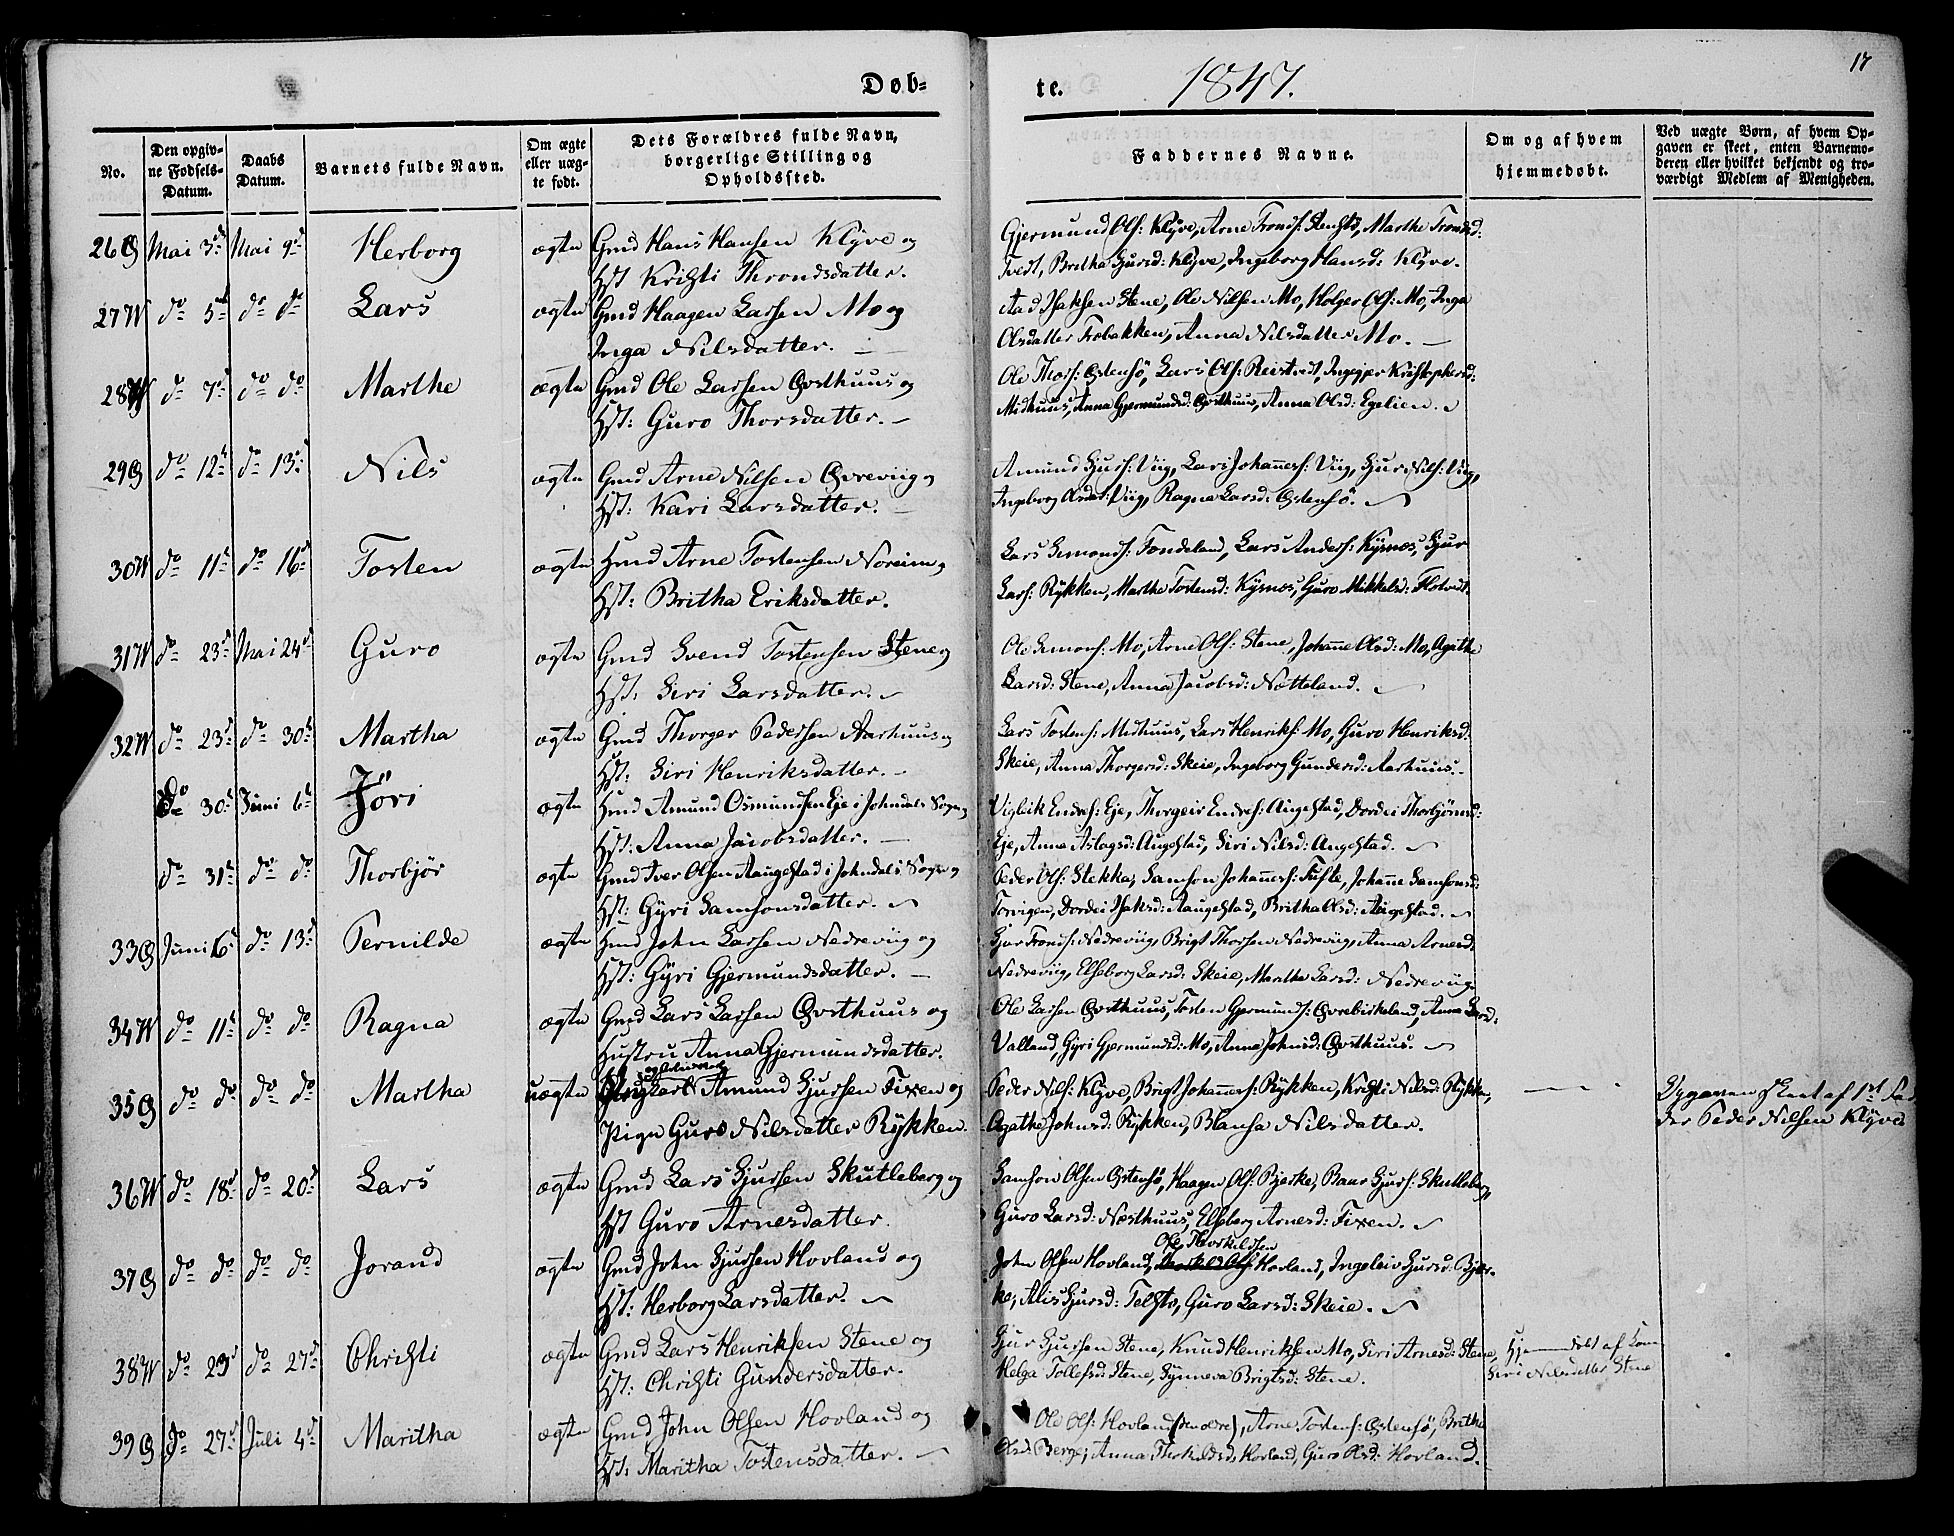 17
Døb-
te.
1847.
No.
Den opgiv-
ne Fødsels-
Datum.
Daabs
Datum.
Barnets fulde Navn.
Om ægte
eller uæg-
te født.
Dets Forældres fulde Navn,
borgerlige Stilling og
Opholdssted.
Faddernes Navne.
Om og af hvem
hjemmedøbt.
Ved uægte Børn, af hvem Op-
gaven er skeet, enten Barnemo-
deren eller hvilket bekjendt og tro-
værdigt Medlem af Menigheden.
26 Mai 3d Mai 9d Herborg ægte Gmd Hans Hansen Klyve og
Hst Kristi Throndsdatter.
Gjermund Ols: Klyve, Arne Tronds: Stensto, Marthe Tronsd:
Tvedt, Britha Sjursd: Klyve, Ingeborg Hansd: Klyve.
27W do 5te do do Lars ægte Gmd Haagen Larsen Mo og
Inga Nilsdatter.
Isaksen Stene, Ole Nilsen Mo, Holger Ols: Mo, Inga
Olsdatter Trobakken, Anna Nilsdatter Mo.
28W do 7d do do Marthe ægte Gmd Ole Larsen Østhuus og
Hst: Guro Thorsdatter.
Ole Thors: Østensø, Lars Ols: Reistvedt, Ingegjer Kristophersd:
Midhuus, Anna Gjermundsd: Østhuus, Anna Olsd: Egelien.
29 do 12t do 13d Nils ægte Gmd Arne Nilsen Øvreviig og
Hst: Kari Larsdatter.
Amund Sjurs: Viig, Lars Johannes: Viig, Sjur Nils: Viig,
Ingeborg Olsd: Viig, Ragna Larsd: Østensø.
30W do 11t do 16d Tosten ægte Hmd Arne Tostensen Noreim og
Hst: Britha Eriksdatter.
Lars Simons: Tondeland, Lars Anders: Kysnæs, Sjur
Lars: Rykken, Marthe Tostensd: Kysnæs, Guro Mikkelsd: Flotvedt.
31W do 23d Mai 24d Guro ægte Gmd Svend Tostensen Stene og
Hst: Siri Larsdatter.
Ole Simons: Mo, Arne Ols: Stene, Johanne Olsd: Mo, Agathe
Larsd: Stene, Anna Jacobsd: Netteland.
32W do 23d do 30t Martha ægte Gmd Thorger Pedersen Aarhuus og
Hst: Siri Henriksdatter.
Lars Tostens: Midhuus, Lars Henriks: Mo, Guro Henriksd:
Skeie, Anna Thorgersd: Skeie, Ingeborg Gundersd: Aarhuus.
do 30t Juni 6t Jøri ægte Hmd Amund Osmundsen Eje i Johndals Sogn og
Hst: Anna Jacobsdatter.
Vigleik Endres: Eje, Thorgeir Endres: Augestad, Dordei Thorbjørnsd:
Eje, Anna Aslagsd: Augestad, Siri Nilsd: Augestad.
do 31t do do Thorbjør ægte Gmd Iver Olsen Augestad i Johndals Sogn og
Hst: Gyri Samsonsdatter.
Peder Ols: Stekka, Samson Johannes: Fiste, Johanne Samsonsd:
Torvigen, Dordei Isaksd: Augestad, Britha Olsd: Augestad.
33 Juni 6t do 13d Pernilde ægte Hmd John Larsen Nedreviig og
Hst: Gyri Gjermundsdatter.
Sjur Tronds: Nedreviig, Brigt Thorsen Nedreviig, Anna Arnesd:
Nedreviig, Elseborg Larsd: Skeie, Martha Larsd: Nedreviig.
34W do 11t do do Ragna ægte Gmd Lars Larsen Østhuus og
Hustru Anna Gjermundsdatter.
Ole Larsen Østhuus, Tosten Gjermunds: Øvrebirkeland, Anna Larsd:
Valland, Gyri Gjermundsd: Mo, Anna Johnsd: Østhuus.
35 do do do do Martha uægte Ungkarl Amund Sjursen Fixen og
Pige Guro Nilsdatter Rykken.
Peder Nils: Klyve, Brigt Johannes: Rykken, Kristi Nilsd: Rykken,
Agathe Johnsd: Rykken, Blansa Nilsdatter.
Opgaven skeet af 1st Fad
der Peder Nilsen Klyve
36W do 18d do 20d Lars ægte Gmd Lars Sjursen Skutleberg og
Hst Guro Arnesdatter.
Samson Olsen Østensø, Haagen Ols: Bjerke, Baar Sjurs: Skutleberg,
Guro Larsd: Næsthuus, Elseborg Arnesd: Fixen.
37 do do do do Jorand ægte Gmd John Sjursen Hovland og
Hst: Herborg Larsdatter.
Ole Thorkildsen
John Olsen Hovland, Hovland, Ingeleiv Sjursd: Bjer-
ke, Alis Sjursd: Telstø, Guro Larsd: Skeie.
38W do 23d do 27d Christi ægte Gmd Lars Henriksen Stene og
Hst: Christi Gundersdatter.
Sjur Sjursen Stene, Knud Henriksen Mo, Siri Arnesd: Stene,
Helga Tollefsd: Stene, Synneva Brigtsd: Stene.
Hjemmedøbt af Kone
Siri Nilsdatter Stene
39 do 27d Juli 4d Maritha ægte Gmd John Olsen Hovland og
Hst: Maritha Tostensdatter.
Ole Ols: Hovland, Arne Tostens: Østensø, Britha
Olsd: Berge, Anna Thorkildsd: Hovland, Guro Olsd: Hovland.